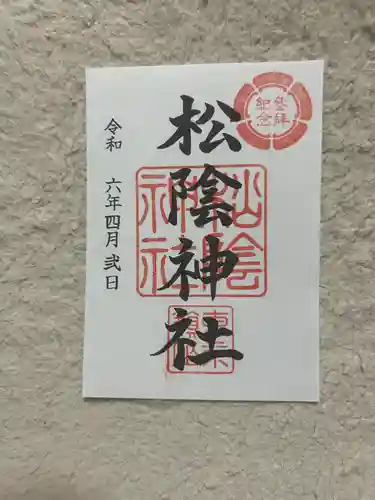 参拝
紀念
松陰神社
松陰
神社
令和 六年四月弐日